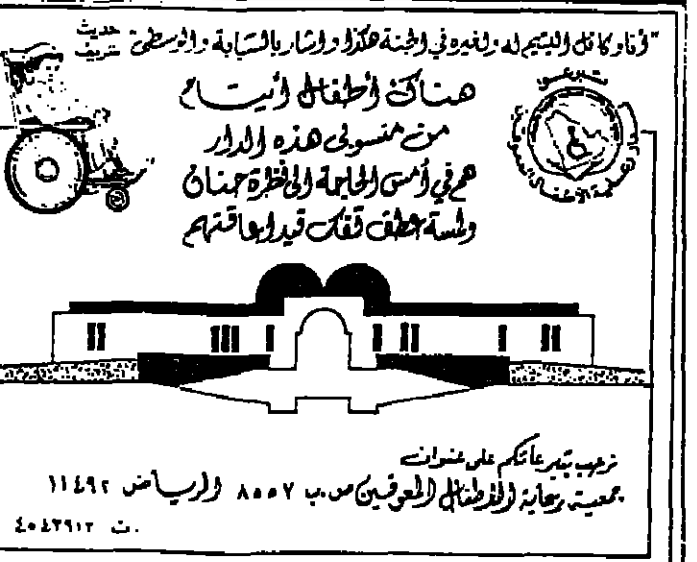 "أنا وكافل اليتيم له ولغيره في الجنة هكذا وأشار بالسبابة والوسطى" حديث شريف
هناك أطفال أيتام
من منسوبي هذه الدار
هم في أمس الحاجة إلى نظرة حنان
ولمسة عطف تفك قيد إعاقتهم
نرحب بتبرعاتكم على عنوان
جمعية رعاية الأطفال المعوقين ص.ب ٨٥٥٧ الرياض ١١٤٩٢
ت. ٤٥٤٣٩١٣